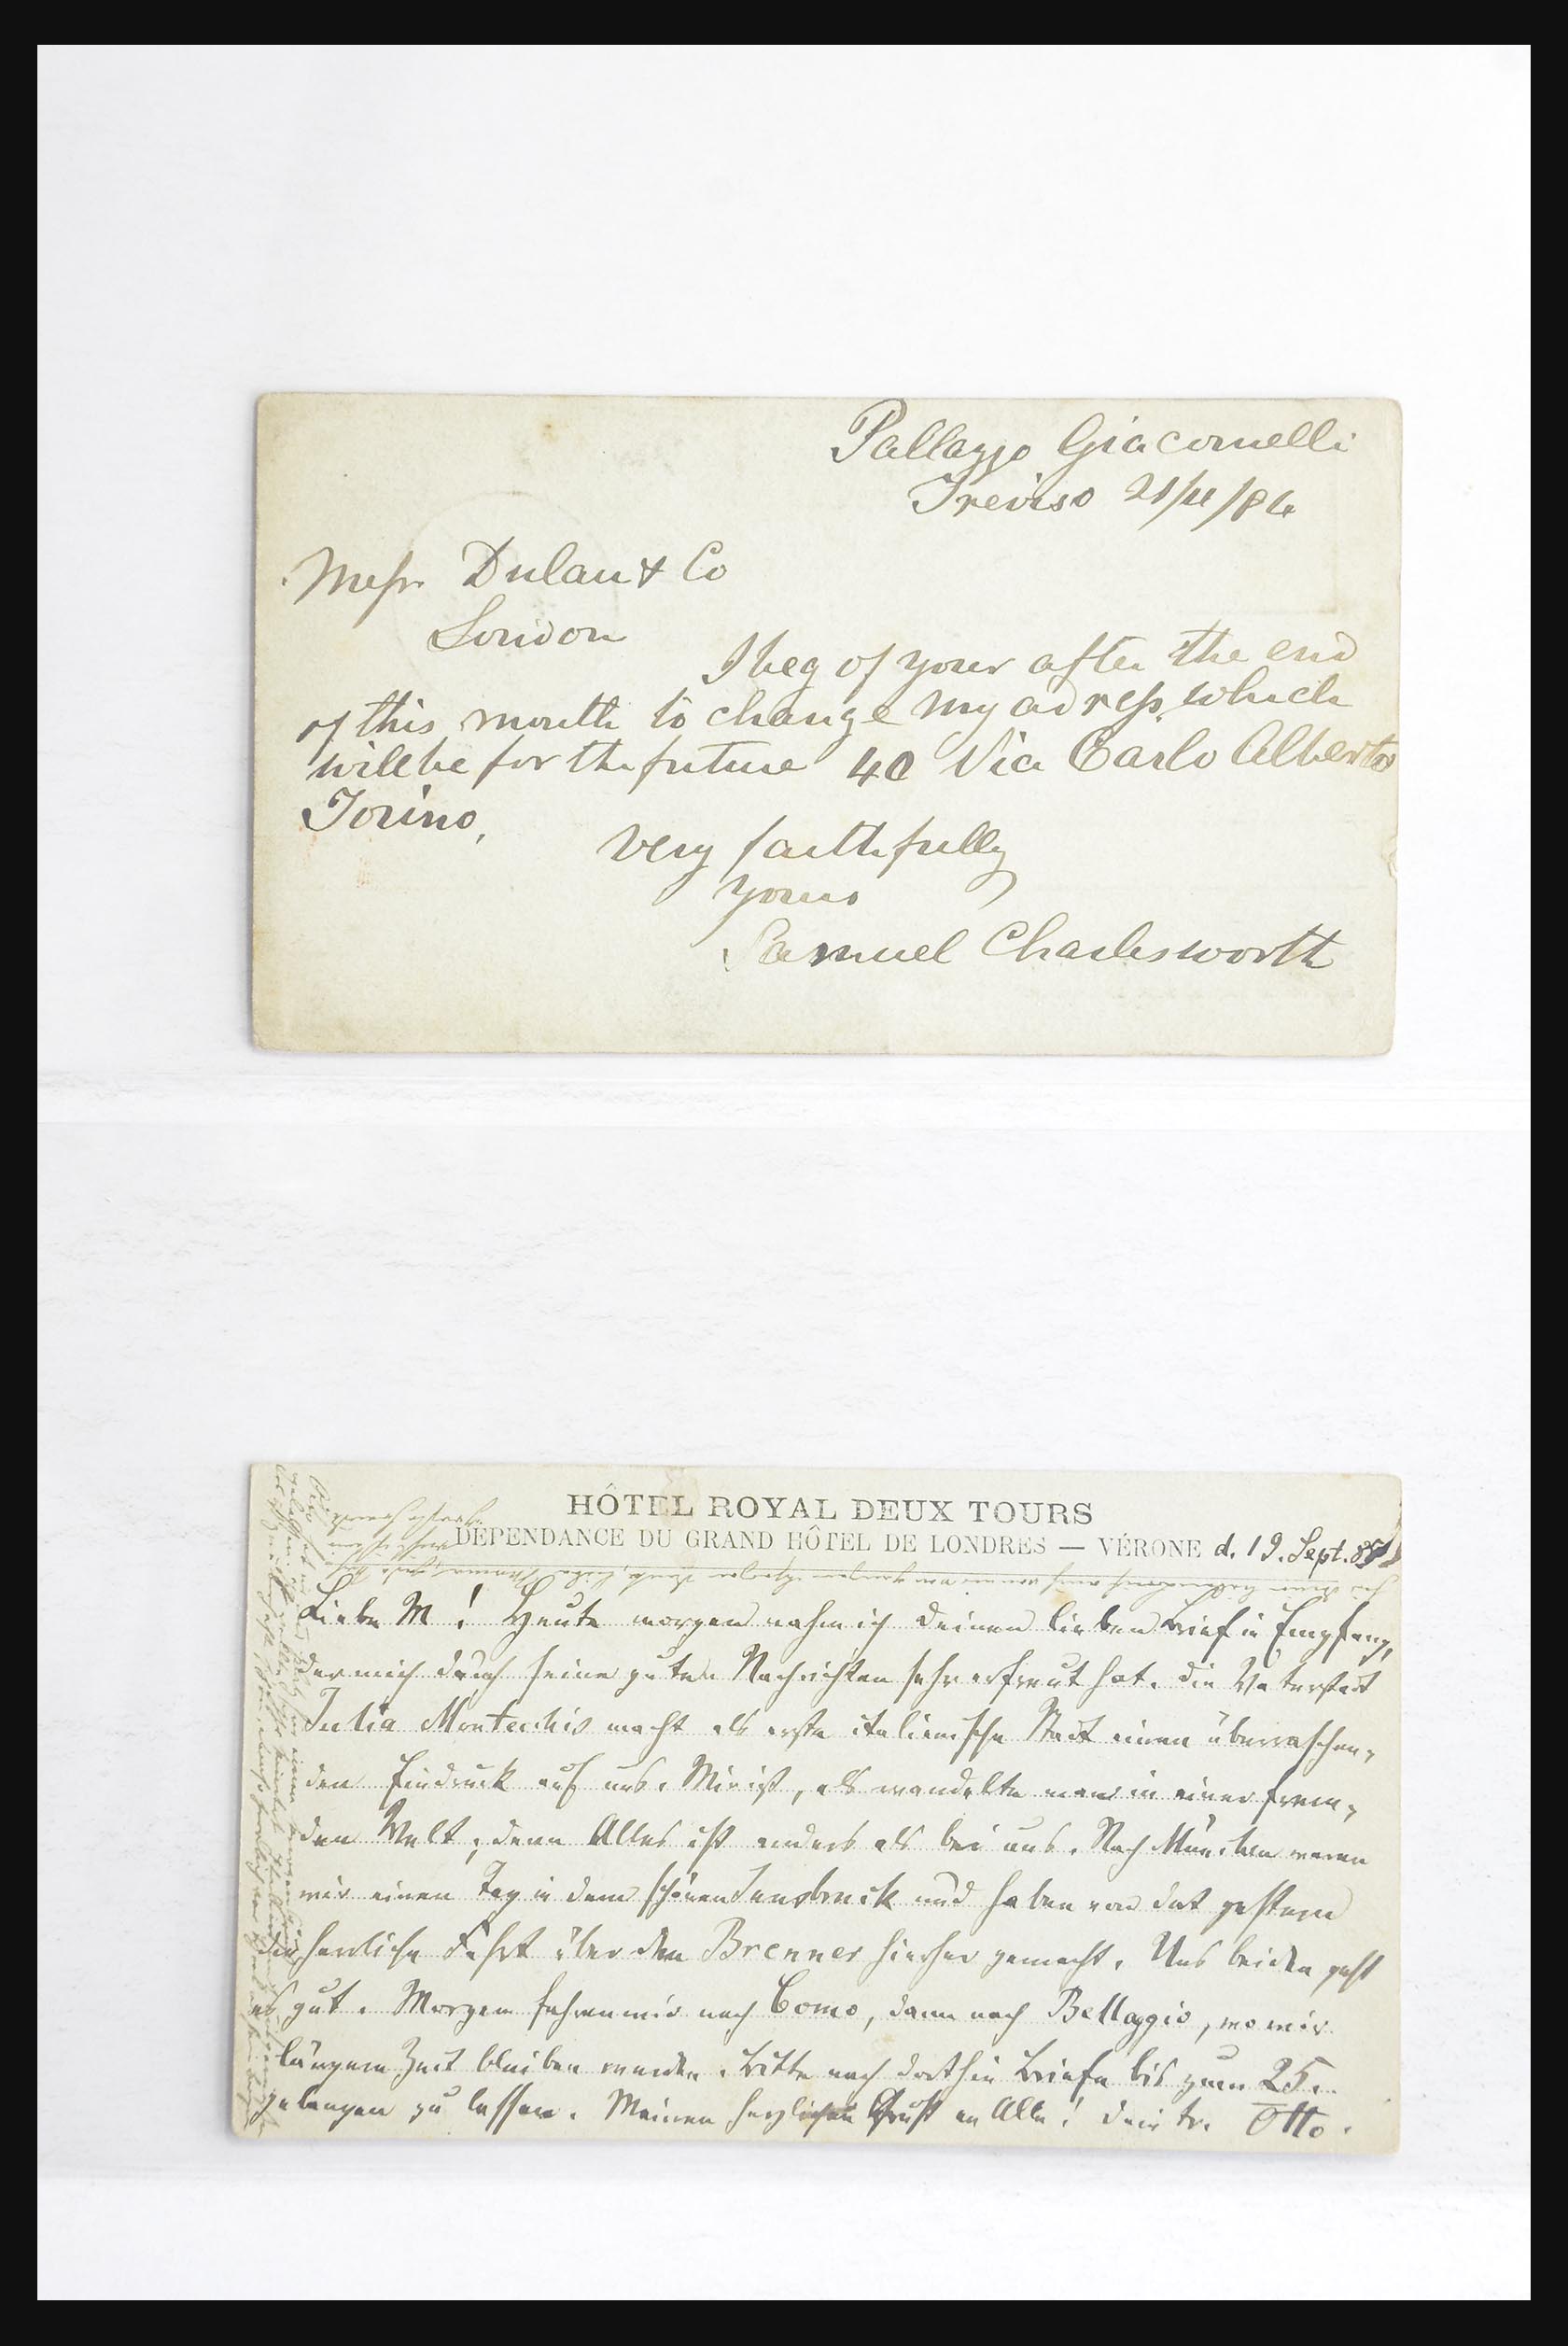 Pallazzo Giacomelli
Treviso 21/11/84
Messr. Dulau & Co
London
I beg of your after the end
of this month to change my adress, which
will be for the future 40 Via Carlo Alberto
Torino,
Very faithfully
yours
Samuel Charlesworth
HÔTEL ROYAL DEUX TOURS
DÉPENDANCE DU GRAND HÔTEL DE LONDRES — VÉRONE d. 19. Sept. 85
Liebe M! Heute morgen nahm ich Deinen lieben Brief in Empfang,
der mich durch seine guten Nachrichten sehr erfreut hat. Die Vaterstadt
Julia Montecchis macht als erste italienische Stadt einen überraschen-
den Eindruck auf uns. Mir ist, als wandelte man in einer frem-
den Welt, denn Alles ist anders als bei uns. Nach München waren
wir einen Tag in dem schönen Innsbruck und haben von dort gestern
die herrliche Fahrt über den Brenner hierher gemacht. Uns beiden geht
es gut. Morgen fahren wir nach Como, dann nach Bellaggio, wo wir
längere Zeit bleiben werden. Bitte nach dorthin Briefe bis zum 25.
gelangen zu lassen. Meinen herzlichen Gruß an Alle! Dein tr. Otto.